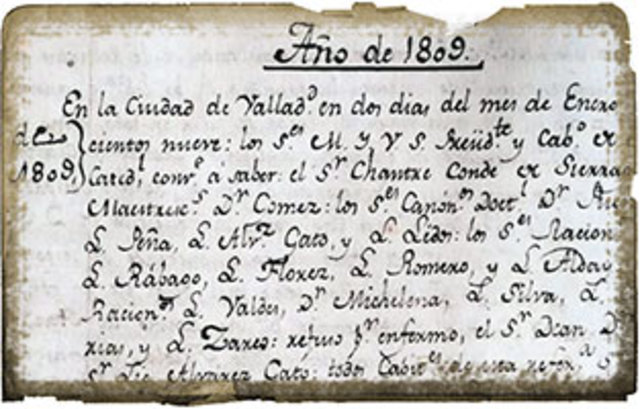 Año de 1809.
En la Ciudad de Vallad.d en dos dias del mes de Enero
de
1809
cientos nueve: los S.es M. Y. V. S. y Cab.o
Cated.l conv.o á saber: el S.r Chantre Conde Sierra
D.r Gomez: los S.es Canón.os Doct.l D.r
L. Peña, L. Alv.z Gato, y L. Ledos: los S.es Racion
L. Rábago, L. Florez, L. Romero, y L. Alday
Racion.os L. Valdes, D.r Michelena, L. Silva, L.
rias, y L. Zarco: p.r enfermo, el S.r Dean D
S.r Lic Alvarez Gato: todos